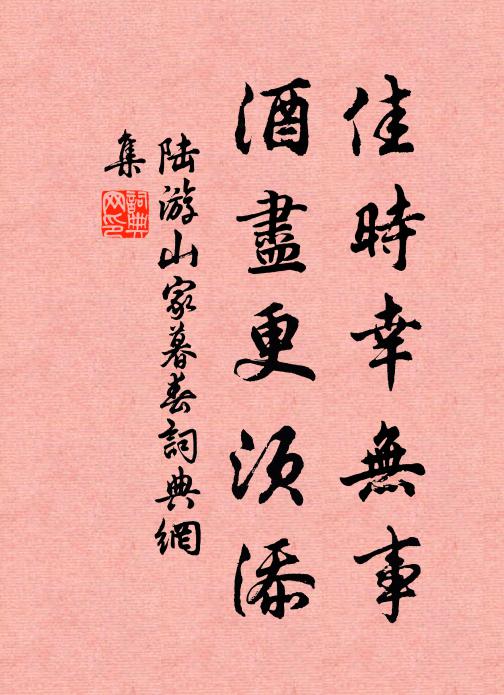 佳時幸無事
酒盡更須添
陸游山家暮春詞典網
集
詞典
网印